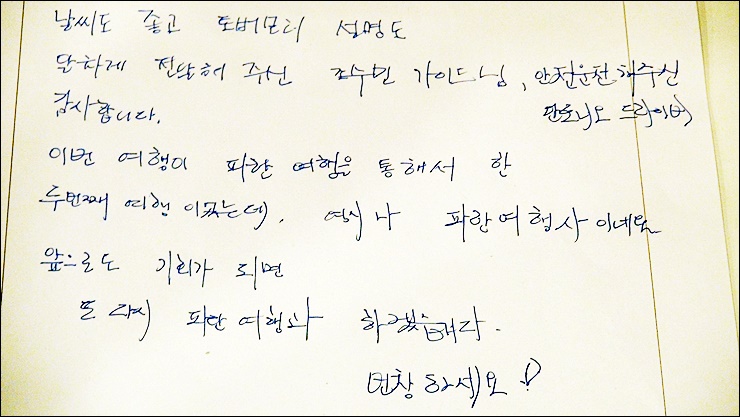 날씨도 좋고 토버모리 설명도
알차게 전달해 주신 조수민 가이드님, 안전운전해주신
감사합니다. 안토니오 드라이버
이번 여행이 파란 여행을 통해서 한
두번째 여행 이었는데, 역시나 파란여행사 이네요
앞으로도 기회가 되면
또 다시 파란여행과 하겠습니다.
번창하세요!